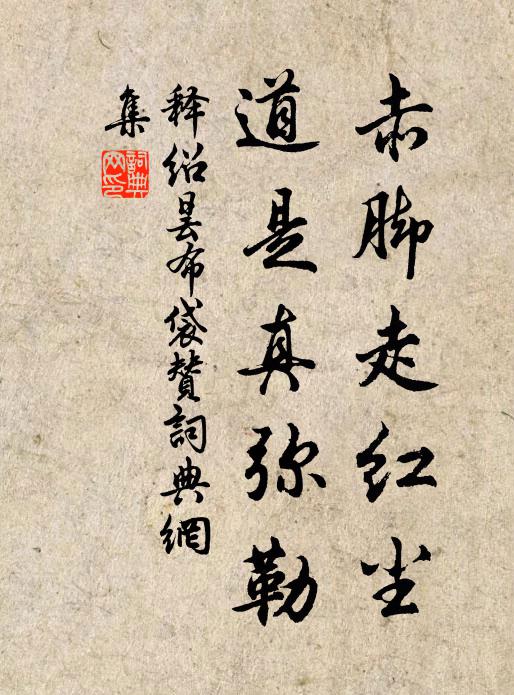 赤脚走红尘
道是真弥勒
释绍昙布袋赞词典網
集
詞典網印